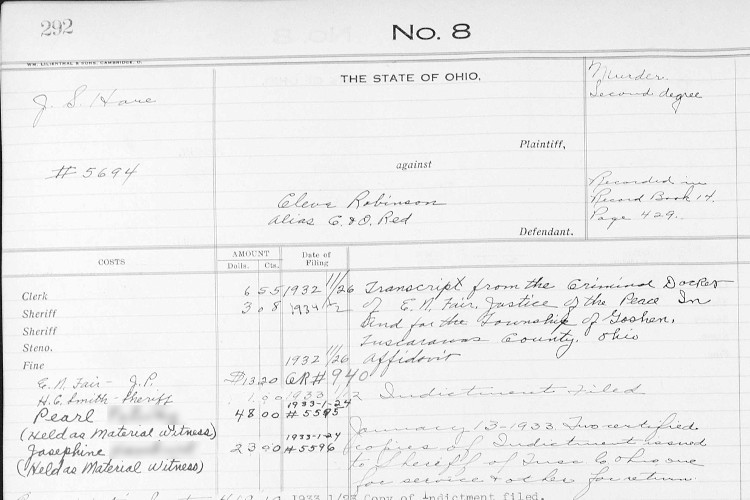 292
No. 8
WM. LILIENTHAL & SONS, CAMBRIDGE, O.
THE STATE OF OHIO,
Murder.
Second degree
J. S. Hare
Plaintiff,
# 5694
against
Recorded in
Record Book 14.
Page 429.
Cleve Robinson
alias C. & O. Red
Defendant.
COSTS
AMOUNT
Dolls. Cts.
Date of
Filing
Clerk 6 55 1932 11/26 Transcript from the Criminal Docket
Sheriff 3 08 1934 of E. N. Fair, Justice of the Peace In
Sheriff And for the Township of Goshen,
Steno. Tuscarawas County, Ohio
Fine 1932 11/26 Affidavit
E. N. Fair - J. P. $13 20 CR # 940
H. C. Smith - Sheriff 1 90 1933 Indictment Filed
Pearl 48 00 1933-1-24 # 5595
(Held as Material Witness) January 13-1933. Two certified
Josephine 23 90 1933-1-24 # 5596 copies of Indictment issued
(Held as Material Witness) to Sheriff of Tusc Co Ohio one
for service & other for return.
1933 1/23 Copy of indictment filed.